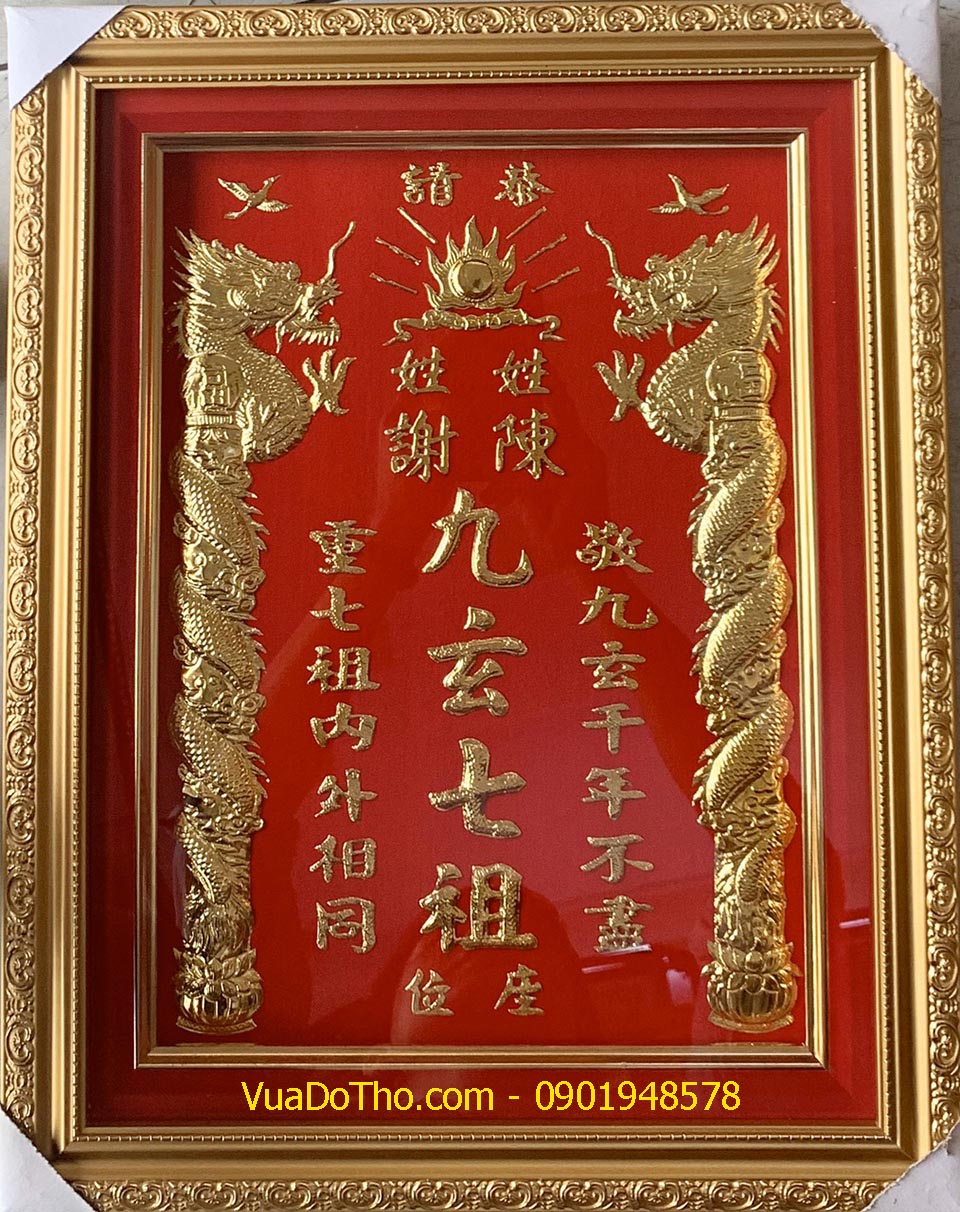 恭請
陳姓
謝姓
敬九玄千年不盡
九玄七祖
重七祖内外相同
座位
VuaDoTho.com - 0901948578